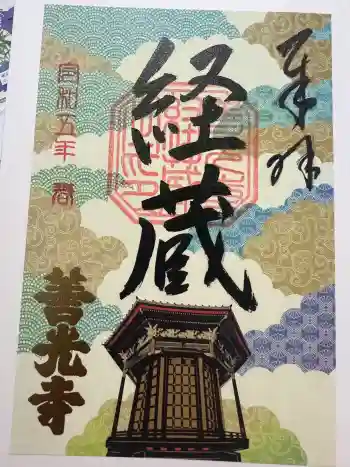 奉拝
経蔵
令和五年 春
善光寺